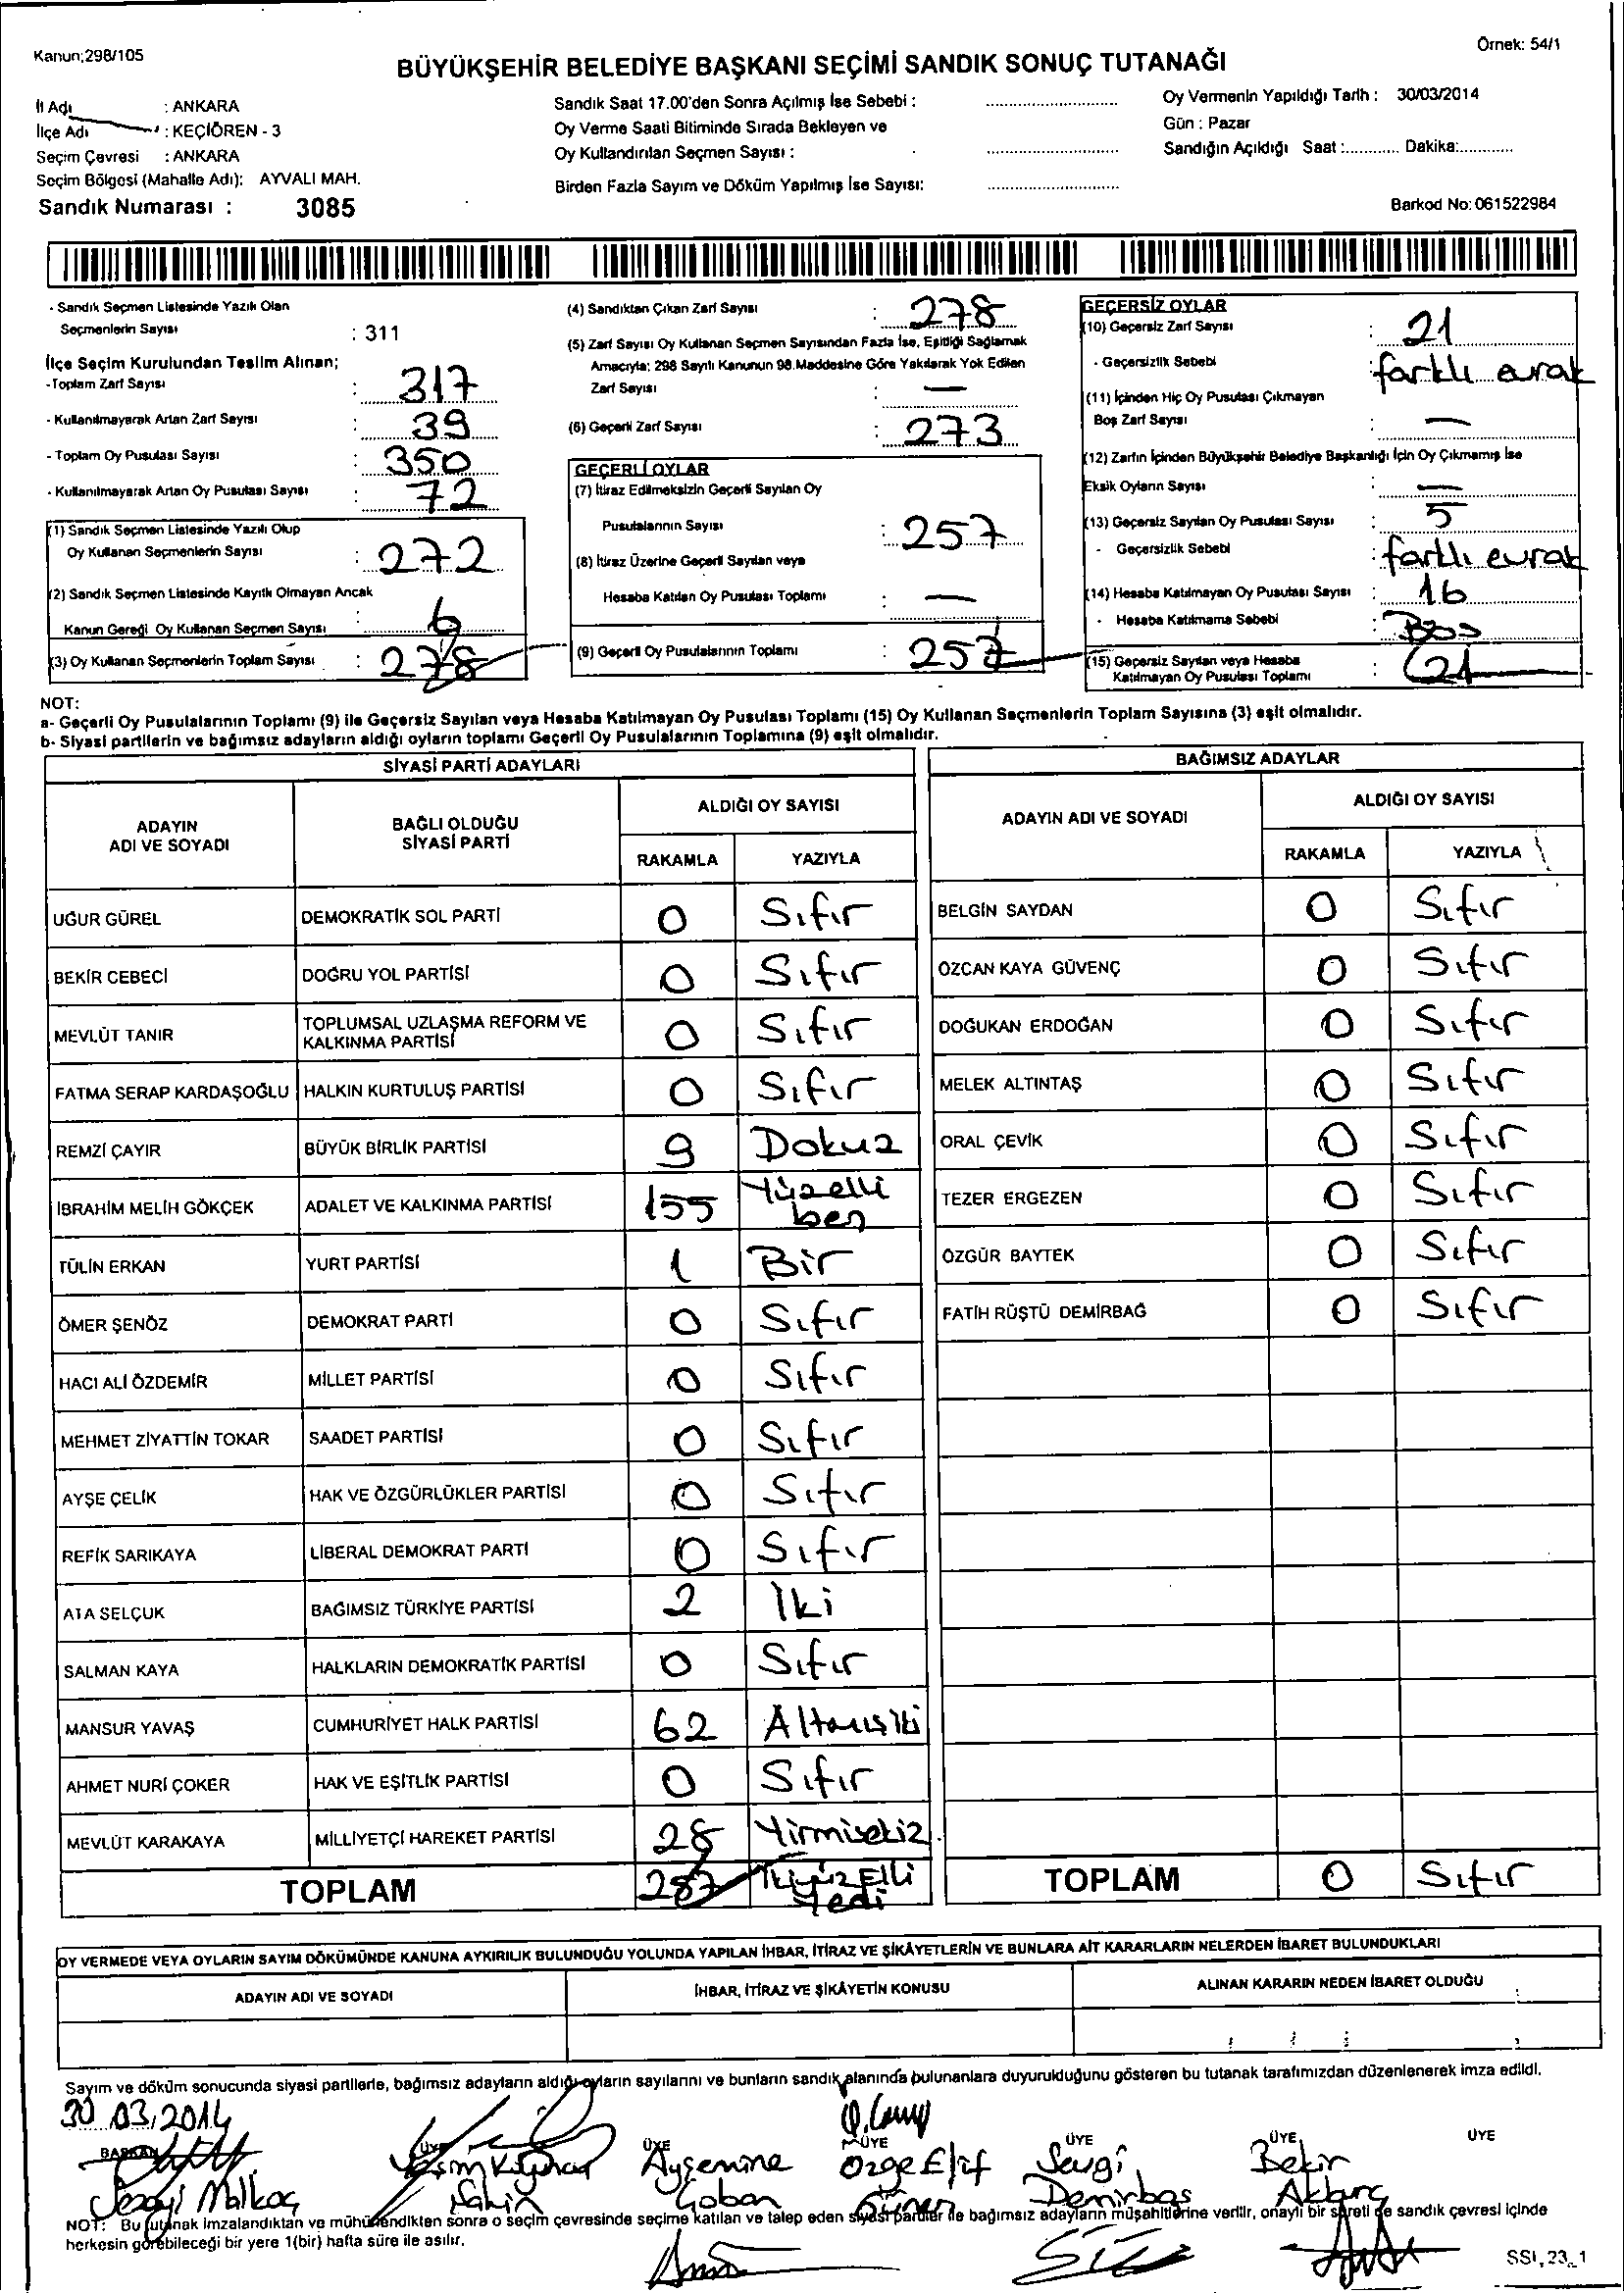 Kanun;298/105
Örnek: 54/1
BÜYÜKŞEHİR BELEDİYE BAŞKANI SEÇİMİ SANDIK SONUÇ TUTANAĞI
İl Adı : ANKARA
İlçe Adı : KEÇİÖREN - 3
Seçim Çevresi : ANKARA
Seçim Bölgesi (Mahalle Adı): AYVALI MAH.
Sandık Numarası : 3085
Sandık Saat 17.00'den Sonra Açılmış İse Sebebi :
Oy Verme Saati Bitiminde Sırada Bekleyen ve
Oy Kullandırılan Seçmen Sayısı :
Birden Fazla Sayım ve Döküm Yapılmış İse Sayısı:
Oy Vermenin Yapıldığı Tarih : 30/03/2014
Gün : Pazar
Sandığın Açıldığı Saat :............ Dakika:............
Barkod No: 061522984
- Sandık Seçmen Listesinde Yazılı Olan
Seçmenlerin Sayısı : 311
İlçe Seçim Kurulundan Teslim Alınan;
-Toplam Zarf Sayısı : 317
- Kullanılmayarak Artan Zarf Sayısı : 39
- Toplam Oy Pusulası Sayısı : 350
- Kullanılmayarak Artan Oy Pusulası Sayısı : 72
(1) Sandık Seçmen Listesinde Yazılı Olup
Oy Kullanan Seçmenlerin Sayısı : 272
(2) Sandık Seçmen Listesinde Kayıtlı Olmayan Ancak
Kanun Gereği Oy Kullanan Seçmen Sayısı 6
(3) Oy Kullanan Seçmenlerin Toplam Sayısı : 278
(4) Sandıktan Çıkan Zarf Sayısı : 278
(5) Zarf Sayısı Oy Kullanan Seçmen Sayısından Fazla İse, Eşitliği Sağlamak
Amacıyla; 298 Sayılı Kanunun 98.Maddesine Göre Yakılarak Yok Edilen
Zarf Sayısı : —
(6) Geçerli Zarf Sayısı : 273
GEÇERLİ OYLAR
(7) İtiraz Edilmeksizin Geçerli Sayılan Oy
Pusulalarının Sayısı : 257
(8) İtiraz Üzerine Geçerli Sayılan veya
Hesaba Katılan Oy Pusulası Toplamı : —
(9) Geçerli Oy Pusulalarının Toplamı : 257
GEÇERSİZ OYLAR
(10) Geçersiz Zarf Sayısı : 21
- Geçersizlik Sebebi : farklı evrak
(11) İçinden Hiç Oy Pusulası Çıkmayan
Boş Zarf Sayısı : —
(12) Zarfın İçinden Büyükşehir Belediye Başkanlığı İçin Oy Çıkmamış İse
Eksik Oyların Sayısı : —
(13) Geçersiz Sayılan Oy Pusulası Sayısı : 5
- Geçersizlik Sebebi : farklı evrak
(14) Hesaba Katılmayan Oy Pusulası Sayısı : 16
- Hesaba Katılmama Sebebi : Boş
(15) Geçersiz Sayılan veya Hesaba
Katılmayan Oy Pusulası Toplamı : 21
NOT:
a- Geçerli Oy Pusulalarının Toplamı (9) ile Geçersiz Sayılan veya Hesaba Katılmayan Oy Pusulası Toplamı (15) Oy Kullanan Seçmenlerin Toplam Sayısına (3) eşit olmalıdır.
b- Siyasi partilerin ve bağımsız adayların aldığı oyların toplamı Geçerli Oy Pusulalarının Toplamına (9) eşit olmalıdır.
SİYASİ PARTİ ADAYLARI
ADAYIN ADI VE SOYADI
BAĞLI OLDUĞU SİYASİ PARTİ
ALDIĞI OY SAYISI
RAKAMLA YAZIYLA
UĞUR GÜREL DEMOKRATİK SOL PARTİ 0 Sıfır
BEKİR CEBECİ DOĞRU YOL PARTİSİ 0 Sıfır
MEVLÜT TANIR TOPLUMSAL UZLAŞMA REFORM VE KALKINMA PARTİSİ 0 Sıfır
FATMA SERAP KARDAŞOĞLU HALKIN KURTULUŞ PARTİSİ 0 Sıfır
REMZİ ÇAYIR BÜYÜK BİRLİK PARTİSİ 9 Dokuz
İBRAHİM MELİH GÖKÇEK ADALET VE KALKINMA PARTİSİ 155 Yüzelli beş
TÜLİN ERKAN YURT PARTİSİ 1 Bir
ÖMER ŞENÖZ DEMOKRAT PARTİ 0 Sıfır
HACI ALİ ÖZDEMİR MİLLET PARTİSİ 0 Sıfır
MEHMET ZİYATTİN TOKAR SAADET PARTİSİ 0 Sıfır
AYŞE ÇELİK HAK VE ÖZGÜRLÜKLER PARTİSİ 0 Sıfır
REFİK SARIKAYA LİBERAL DEMOKRAT PARTİ 0 Sıfır
ATA SELÇUK BAĞIMSIZ TÜRKİYE PARTİSİ 2 İki
SALMAN KAYA HALKLARIN DEMOKRATİK PARTİSİ 0 Sıfır
MANSUR YAVAŞ CUMHURİYET HALK PARTİSİ 62 Altmışiki
AHMET NURİ ÇOKER HAK VE EŞİTLİK PARTİSİ 0 Sıfır
MEVLÜT KARAKAYA MİLLİYETÇİ HAREKET PARTİSİ 28 Yirmisekiz
TOPLAM 257 İkiyüzElli Yedi
BAĞIMSIZ ADAYLAR
ADAYIN ADI VE SOYADI
ALDIĞI OY SAYISI
RAKAMLA YAZIYLA
BELGİN SAYDAN 0 Sıfır
ÖZCAN KAYA GÜVENÇ 0 Sıfır
DOĞUKAN ERDOĞAN 0 Sıfır
MELEK ALTINTAŞ 0 Sıfır
ORAL ÇEVİK 0 Sıfır
TEZER ERGEZEN 0 Sıfır
ÖZGÜR BAYTEK 0 Sıfır
FATİH RÜŞTÜ DEMİRBAĞ 0 Sıfır
TOPLAM 0 Sıfır
OY VERMEDE VEYA OYLARIN SAYIM DÖKÜMÜNDE KANUNA AYKIRILIK BULUNDUĞU YOLUNDA YAPILAN İHBAR, İTİRAZ VE ŞİKÂYETLERİN VE BUNLARA AİT KARARLARIN NELERDEN İBARET BULUNDUKLARI
ADAYIN ADI VE SOYADI
İHBAR, İTİRAZ VE ŞİKÂYETİN KONUSU
ALINAN KARARIN NEDEN İBARET OLDUĞU
Sayım ve döküm sonucunda siyasi partilerle, bağımsız adayların aldığı oyların sayılarını ve bunların sandık alanında bulunanlara duyurulduğunu gösteren bu tutanak tarafımızdan düzenlenerek imza edildi.
30.03.2014
BAŞKAN ÜYE ÜYE ÜYE ÜYE ÜYE ÜYE
Sezayi Malkoç
Şahin
Ayşemine Çoban
Özge Elif
Sevgi Demirbaş
Bekir Akbaş
NOT: Bu tutanak imzalandıktan ve mühürlendikten sonra o seçim çevresinde seçime katılan ve talep eden siyasi partiler ile bağımsız adayların müşahitlerine verilir, onaylı bir sureti de sandık çevresi içinde
herkesin görebileceği bir yere 1(bir) hafta süre ile asılır.
SSI, 23_1